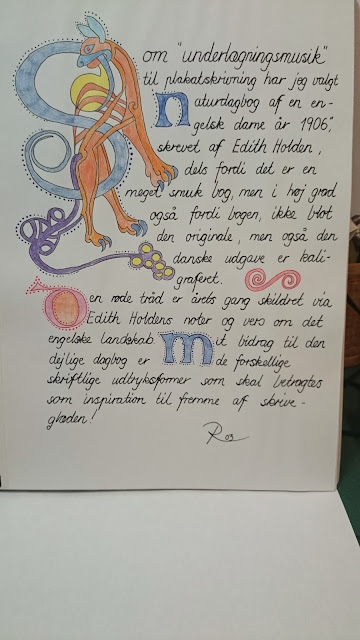 Som "underlægningsmusik"
til plakatskrivning har jeg valgt
"Naturdagbog af en en-
gelsk dame år 1906",
skrevet af Edith Holden,
dels fordi det er en
meget smuk bog, men i høj grad
også fordi bogen, ikke blot
den originale, men også den
danske udgave er kali-
graferet.
Den røde tråd er årets gang skildret via
Edith Holdens noter og vers om det
engelske landskab. Mit bidrag til den
dejlige dagbog er de forskellige
skriftlige udtryksformer som skal betragtes
som inspiration til fremme af skrive-
glæden!
R 03